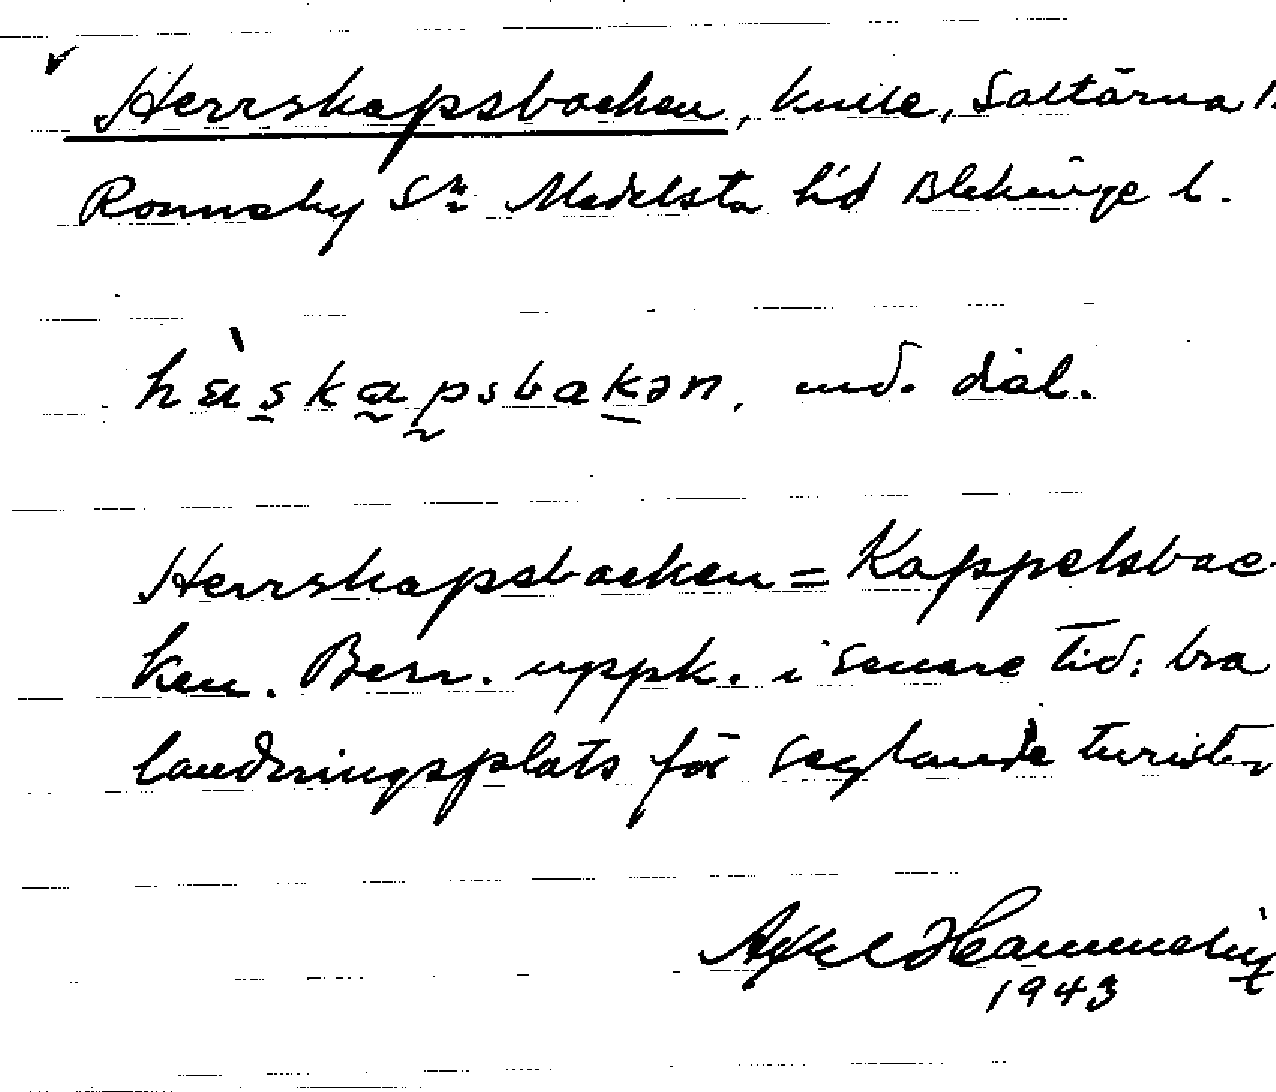 Herrskapsbacken, kulle, Saltärna 1.
Ronneby Sn Medelsta hd Blekinge l.
hæ̀skapsbakən, und. dial.
Herrskapsbacken = Kappelsbac-
ken. Ben. uppk. i senare tid: bra
landningsplats för seglande turister
Axel Hammeby
1943